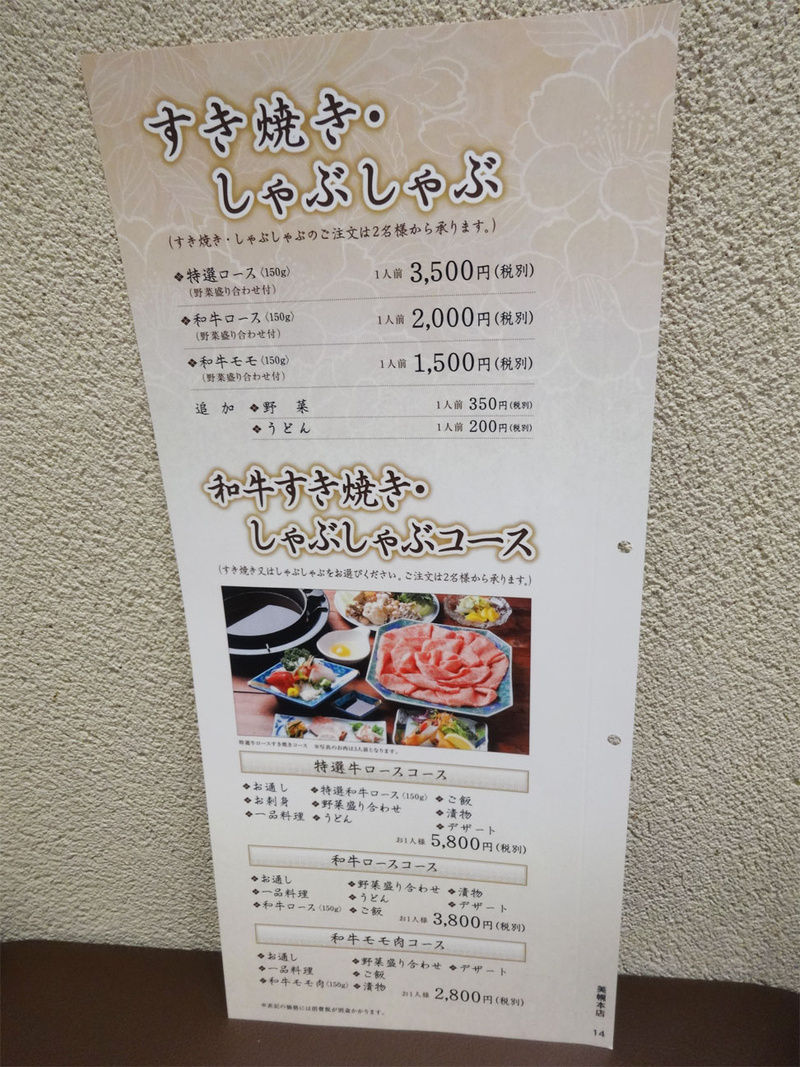 すき焼き・
しゃぶしゃぶ
(すき焼き・しゃぶしゃぶのご注文は2名様から承ります。)
❖特選ロース(150g) 1人前 3,500円(税別)
(野菜盛り合わせ付)
❖和牛ロース(150g) 1人前 2,000円(税別)
(野菜盛り合わせ付)
❖和牛モモ(150g) 1人前 1,500円(税別)
(野菜盛り合わせ付)
追加 ❖野菜 1人前 350円(税別)
❖うどん 1人前 200円(税別)
和牛すき焼き・
しゃぶしゃぶコース
(すき焼き又はしゃぶしゃぶをお選びください。ご注文は2名様から承ります。)
特選牛ロースすき焼きコース ※写真のお肉は3人前となります。
特選牛ロースコース
❖お通し ❖特選和牛ロース(150g) ❖ご飯
❖お刺身 ❖野菜盛り合わせ ❖漬物
❖一品料理 ❖うどん ❖デザート
お1人様 5,800円(税別)
和牛ロースコース
❖お通し ❖野菜盛り合わせ ❖漬物
❖一品料理 ❖うどん ❖デザート
❖和牛ロース(150g) ❖ご飯 お1人様 3,800円(税別)
和牛モモ肉コース
❖お通し ❖野菜盛り合わせ ❖デザート
❖一品料理 ❖ご飯
❖和牛モモ肉(150g) ❖漬物 お1人様 2,800円(税別)
※表記の価格には消費税が別途かかります。
美幌本店
14